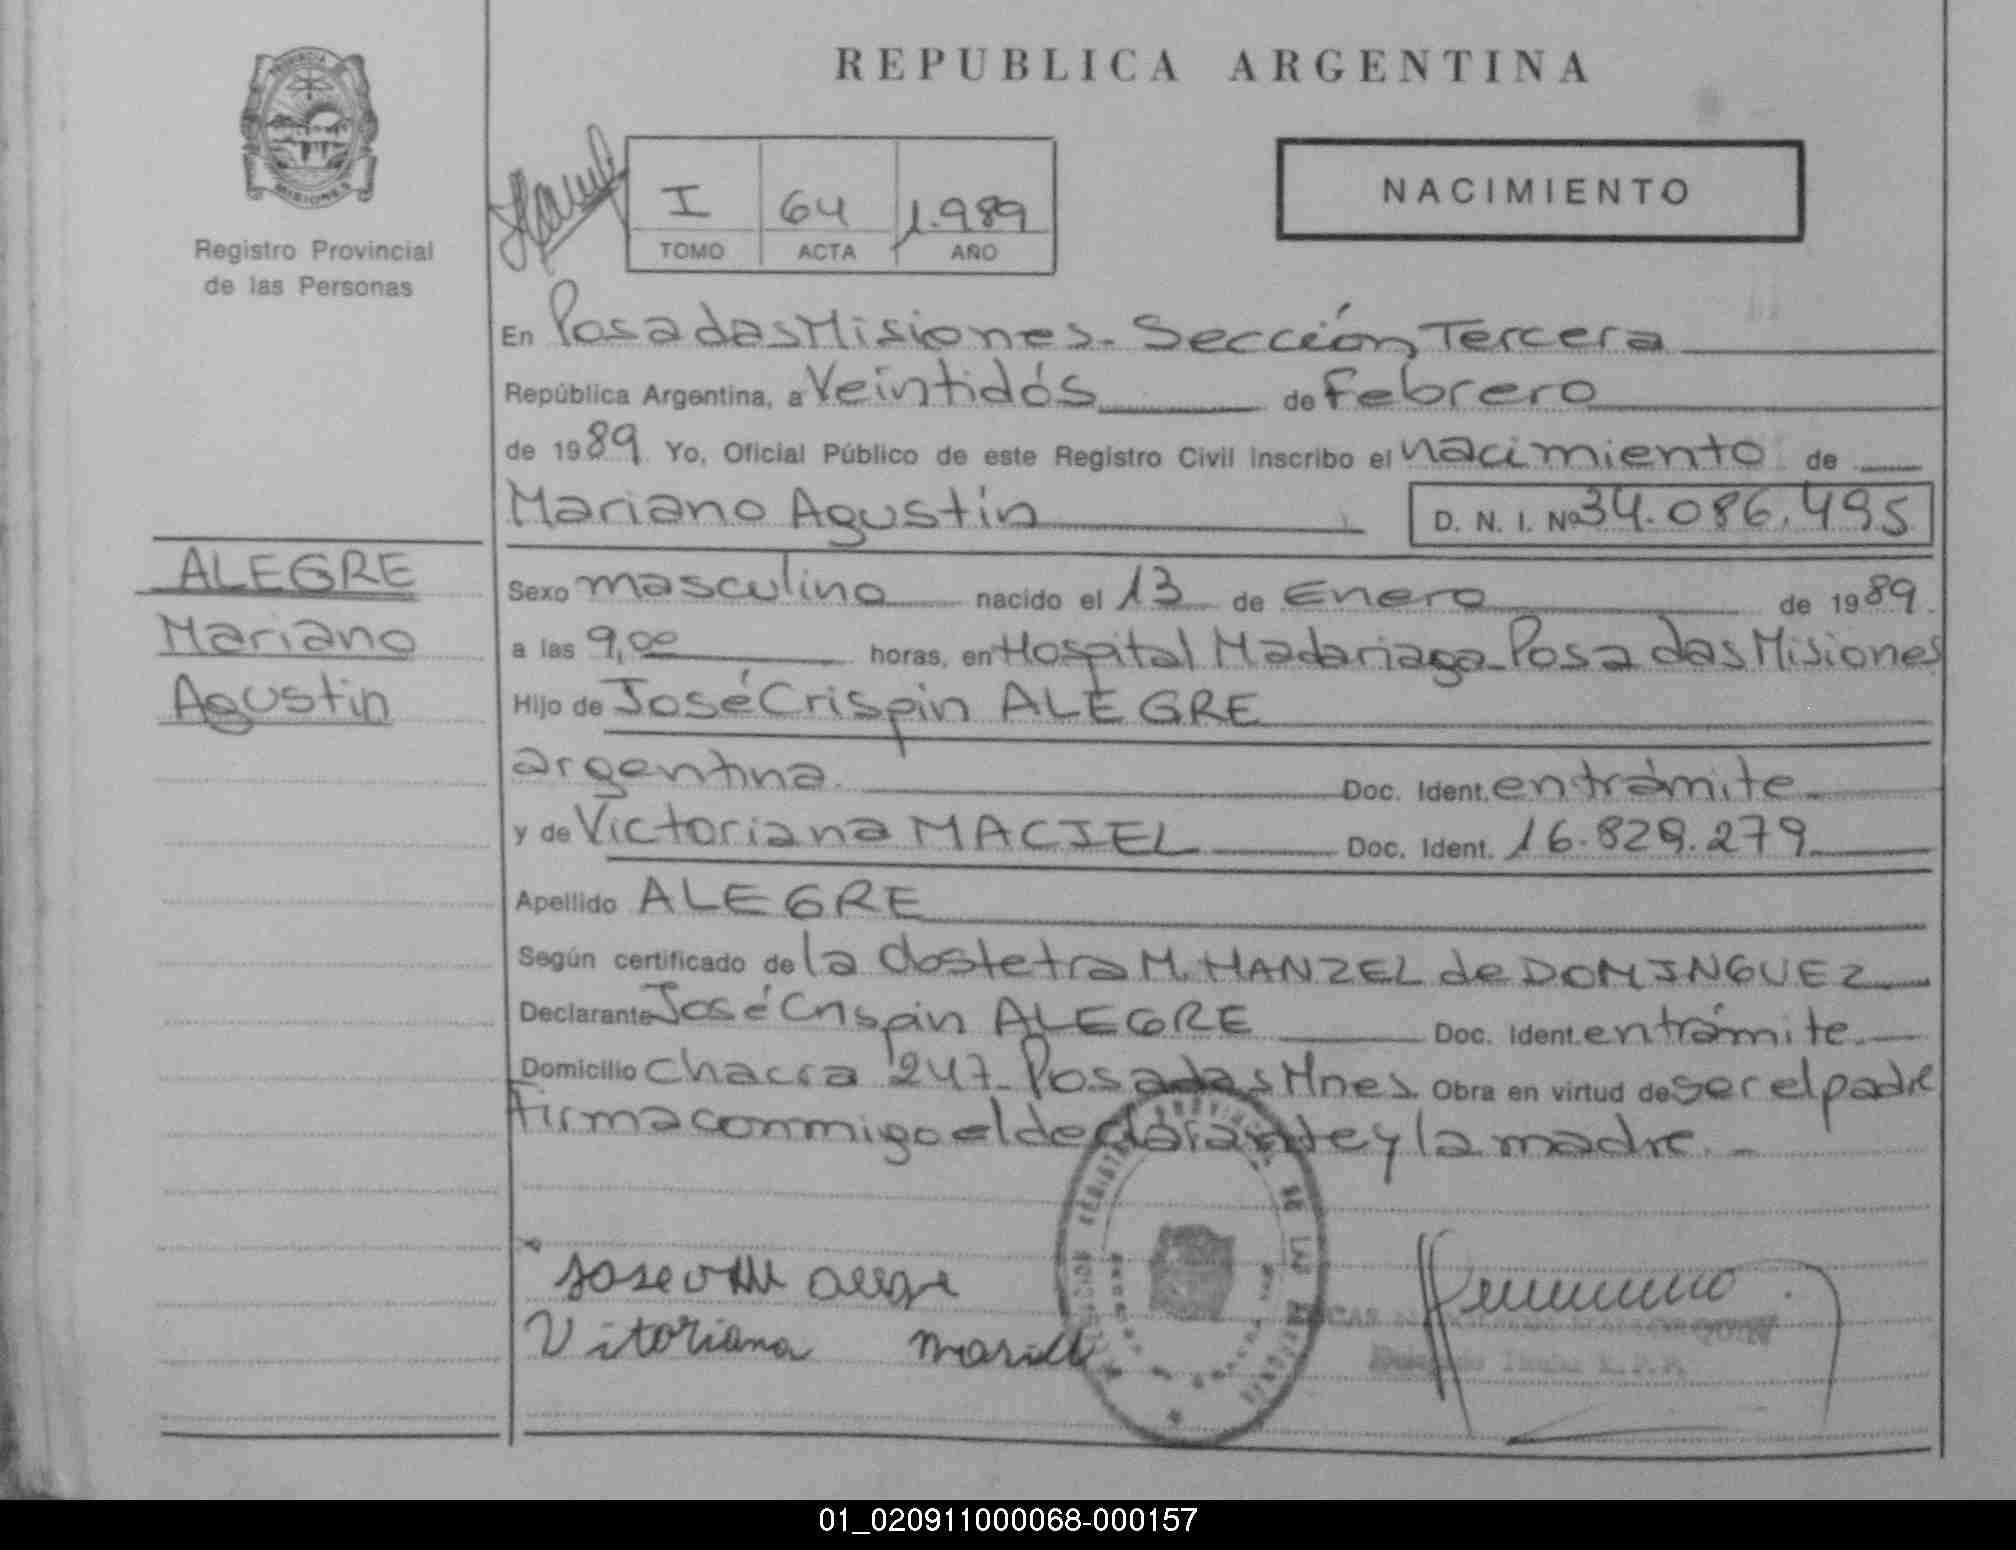 REPUBLICA ARGENTINA
PROVINCIA
MISIONES
Registro Provincial
de las Personas
I 64 1.989
TOMO ACTA AÑO
NACIMIENTO
En Posadas Misiones. Sección Tercera
República Argentina, a Veintidós de Febrero
de 1989 Yo, Oficial Público de este Registro Civil inscribo el nacimiento de
Mariano Agustín D. N. I. Nº 34.086.495
ALEGRE
Mariano
Agustin
Sexo masculino nacido el 13 de Enero de 1989.
a las 9,00 horas, en Hospital Madariaga_Posadas Misiones
Hijo de José Crispin ALEGRE
argentina Doc. Ident. en trámite
y de Victoriana MACIEL Doc. Ident. 16.829.279
Apellido ALEGRE
Según certificado de la dostetra M. HANZEL de DOMINGUEZ
Declarante José Crispin ALEGRE Doc. Ident. en trámite.
Domicilio Chacra 247_ Posadas Mnes. Obra en virtud de ser el padre
firma conmigo el declarante y la madre. -
Vitoriana
01_020911000068-000157